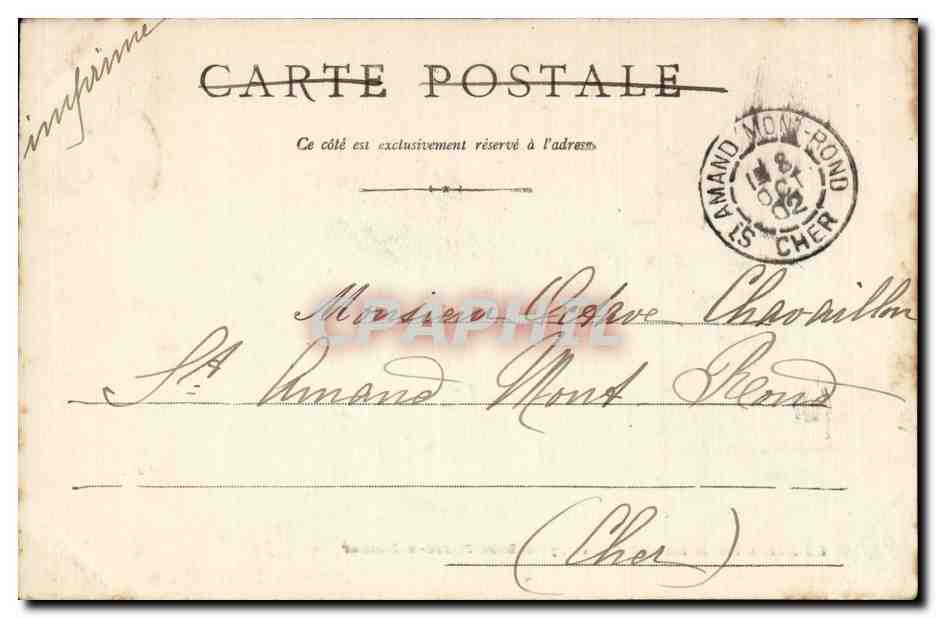 imprimé
CARTE POSTALE
Ce côté est exclusivement réservé à l'adresse
ST AMAND-MONT-ROND
8
OCT
02
CHER
CPAPHIL
Monsieur Octave Chavaillon
St. Amand Mont Rond
(Cher)